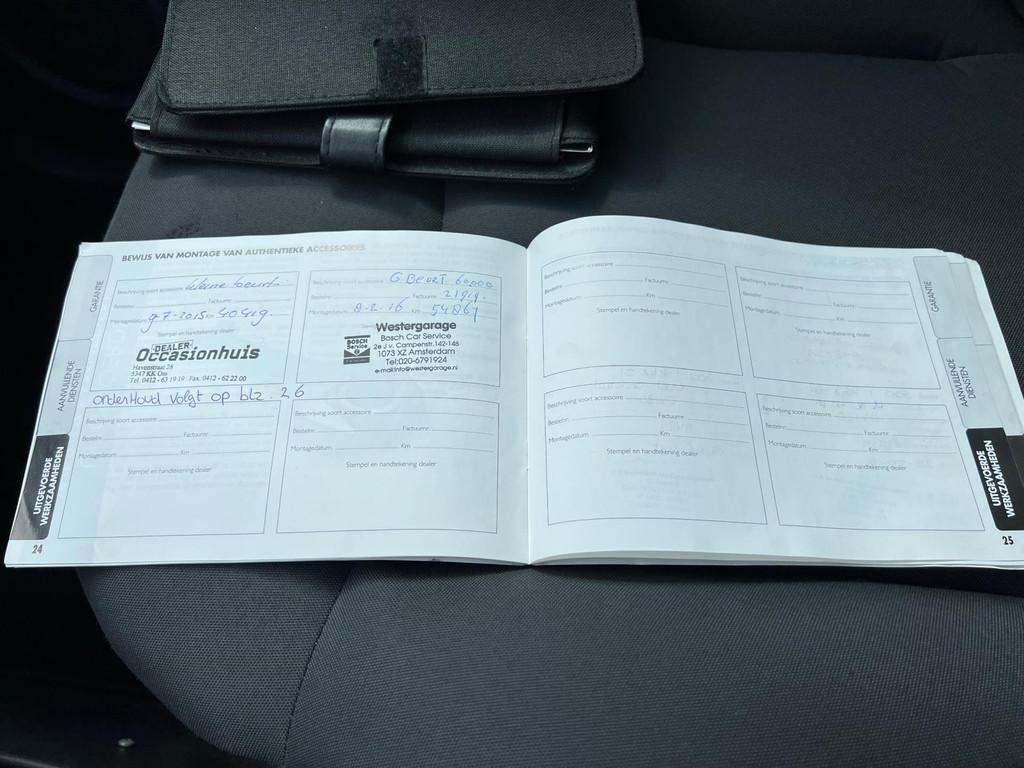 BEWIJS VAN MONTAGE VAN AUTHENTIEKE ACCESSOIRES
GARANTIE
AANVULLENDE DIENSTEN
UITGEVOERDE WERKZAAMHEDEN
Beschrijving soort accessoire
Bestelnr. Factuurnr.
Montagedatum 9-7-2015
Stempel en handtekening dealer
DEALER
Occasionhuis
Havenstraat 28
5347 KK Oss
Tel. 0412 - 63 19 19 Fax. 0412 - 62 22 00
Beschrijving soort accessoire G Beurt 60000
Bestelnr. Factuurnr.
Montagedatum 9-2-16 Km
Westergarage
BOSCH
Service
Bosch Car Service
2e J v. Campenstr. 142-146
1073 XZ Amsterdam
Tel:020-6791924
e-mail:info@westergarage.nl
onderHoud volgt op blz. 26
Beschrijving soort accessoire
Bestelnr. Factuurnr.
Montagedatum Km
Stempel en handtekening dealer
Beschrijving soort accessoire
Bestelnr. Factuurnr.
Montagedatum Km
Stempel en handtekening dealer
24
Beschrijving soort accessoire
Bestelnr. Factuurnr.
Montagedatum Km
Stempel en handtekening dealer
Beschrijving soort accessoire
Bestelnr. Factuurnr.
Montagedatum Km
Stempel en handtekening dealer
Beschrijving soort accessoire
Bestelnr. Factuurnr.
Montagedatum Km
Stempel en handtekening dealer
Beschrijving soort accessoire
Bestelnr. Factuurnr.
Montagedatum Km
Stempel en handtekening dealer
GARANTIE
AANVULLENDE DIENSTEN
UITGEVOERDE WERKZAAMHEDEN
25